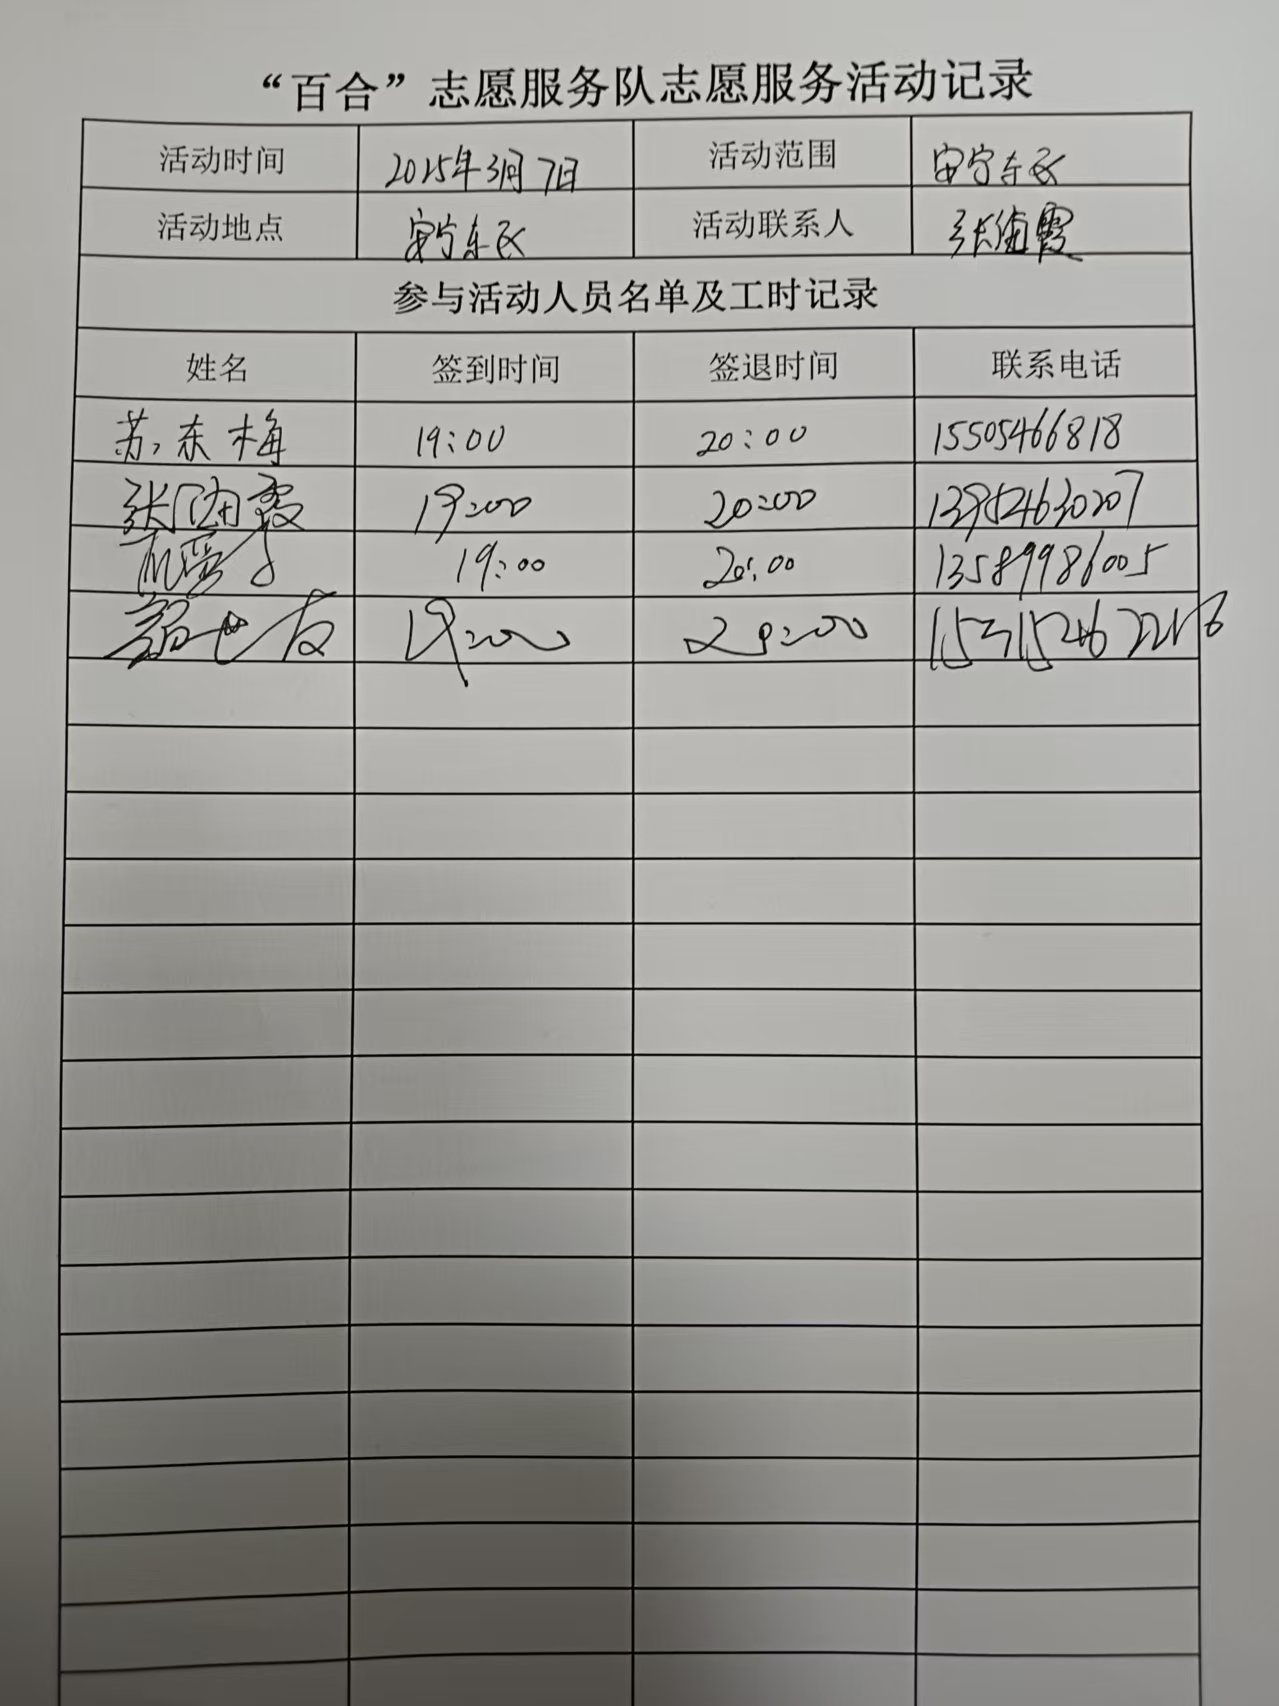 “百合”志愿服务队志愿服务活动记录
活动时间 2025年3月7日 活动范围 安宁东区
活动地点 安宁东区 活动联系人 张海霞
参与活动人员名单及工时记录
姓名 签到时间 签退时间 联系电话
苏东梅 19:00 20:00 15505466818
张海霞 19:00 20:00 13954630207
19:00 20:00 13589986005
19:00 20:00